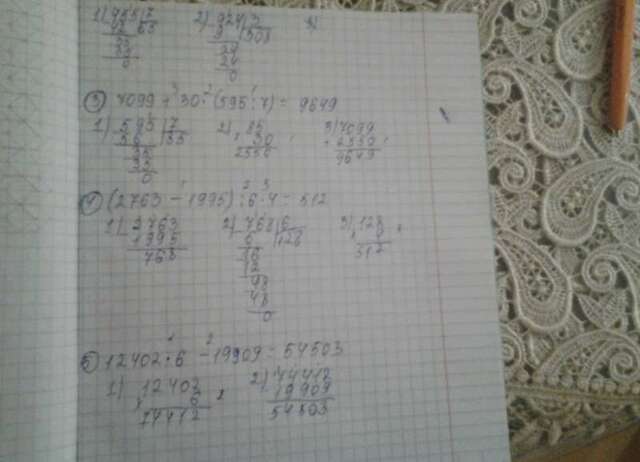 1) 455 7 2) 924 3 3)
42 308
35 24
35 24
0 0
③ 7099 + 30 · (595 : 7) = 9649
1) 595 7 2) 85 3) 7099
56 85 30 2550
35 2550 9649
35
0
④ (2763 - 1995) : 6 · 4 = 512
1) 2763 2) 768 6 3) 128
1995 6 128 4
768 16 512
12
48
48
0
⑤ 12402 · 6 - 19909 = 54503
1) 12402 2) 74412
6 19909
74412 54503